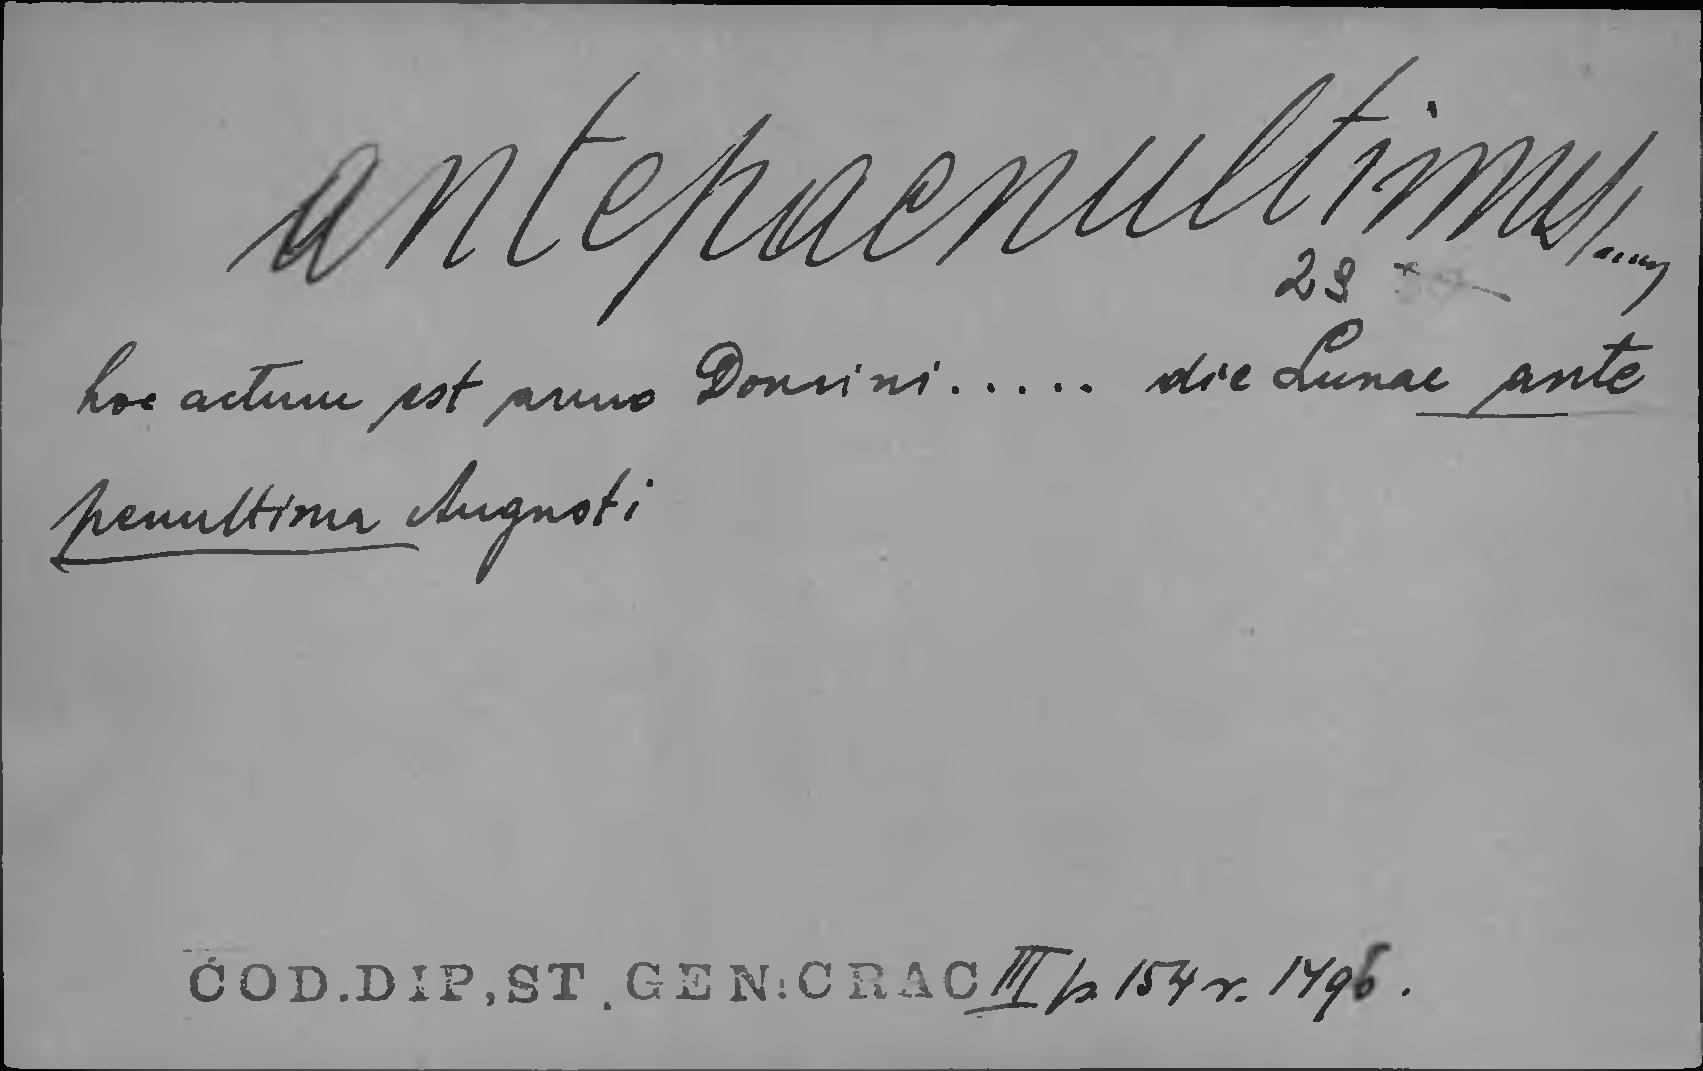 antepaenultimus
29
hoc actum est anno Domini..... die Lunae ante
penultima Augusti
COD.DIP,ST.GEN:CRAC III p 154 r. 1496.